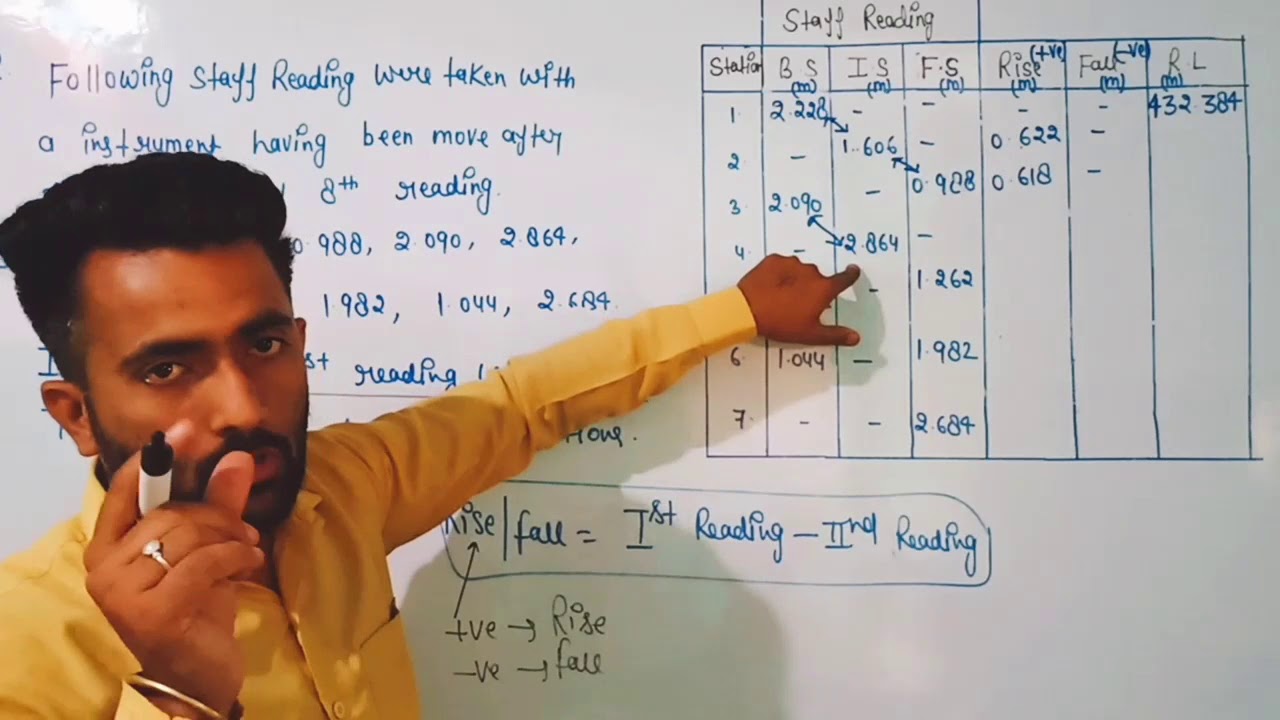 Following Staff Reading were taken with
a instrument having been move after
8th reading.
0.988, 2.090, 2.864,
1.982, 1.044, 2.684.
st reading
Staff Reading
Station B.S (m) I.S (m) F.S (m) Rise (+ve) (m) Fall (-ve) (m) R.L (m)
1. 2.228 - - - - 432.384
2 - 1.606 - 0.622 -
3 2.090 - 0.988 0.618 -
4. - 2.864 -
- 1.262
6. 1.044 - 1.982
7. - - 2.684
Rise/fall = Ist Reading - IInd Reading
+ve → Rise
-ve → fall